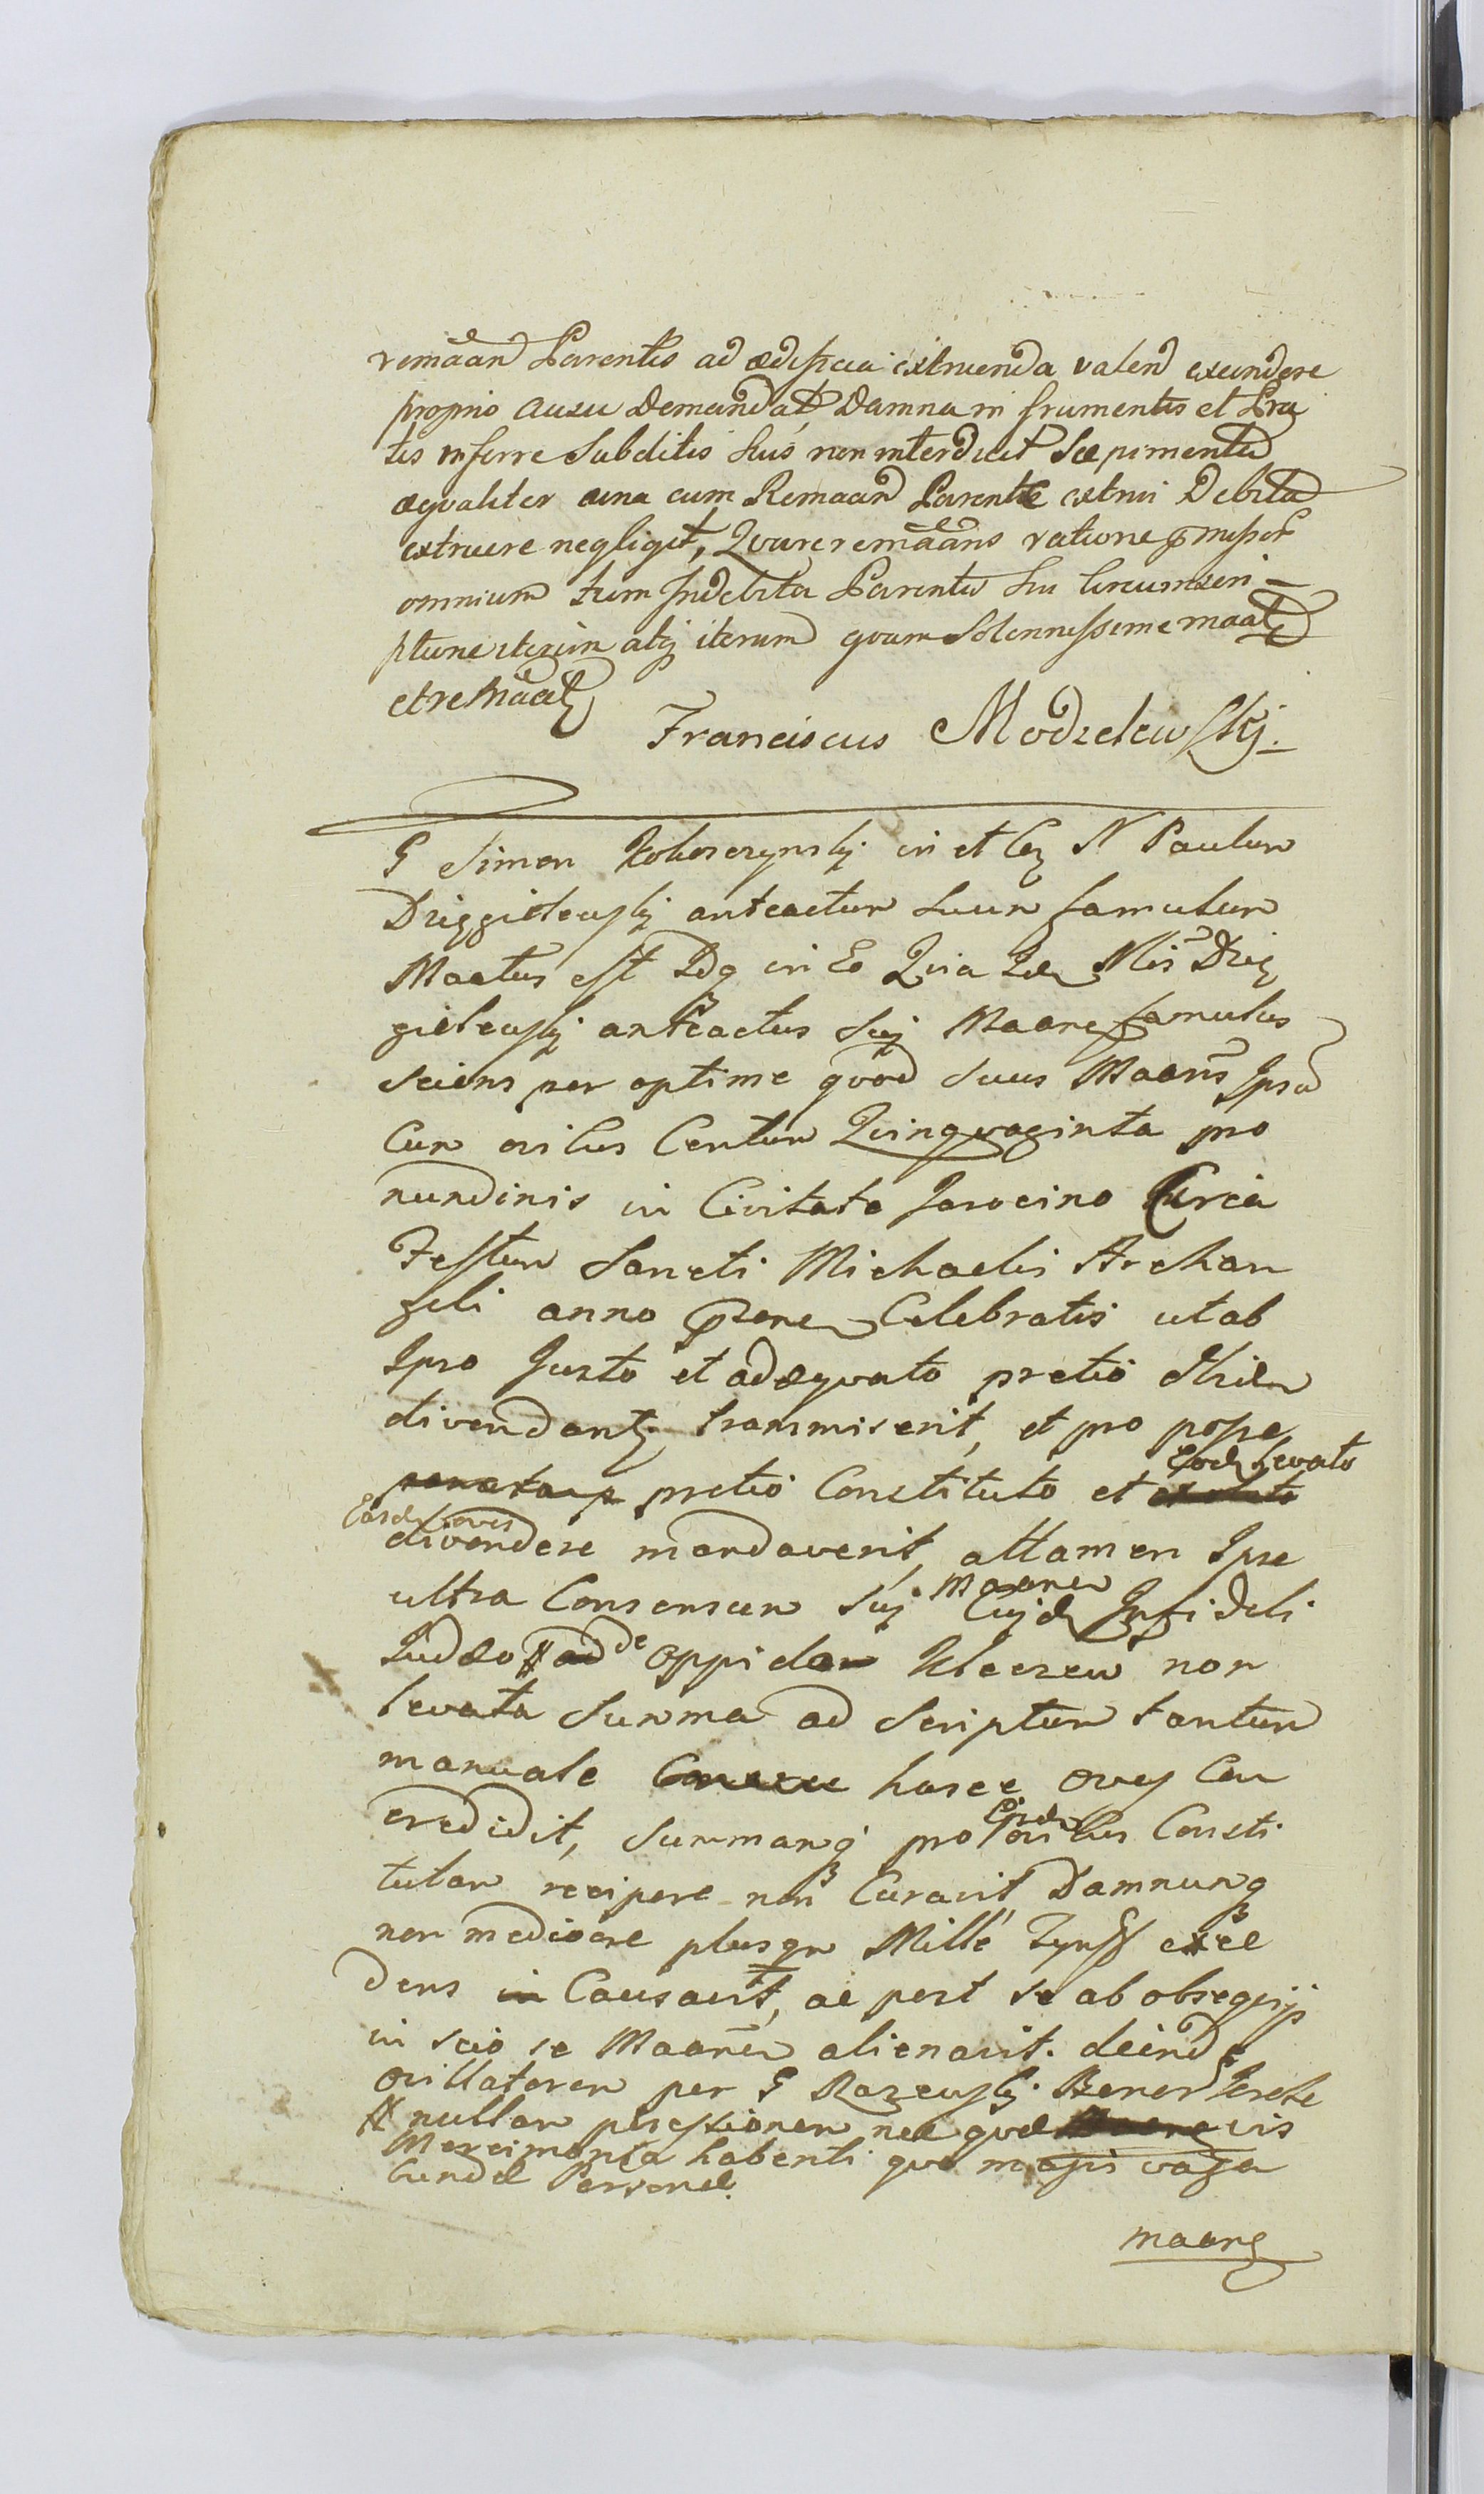 remaan Parentis ad ædificia extruenda valend exscindere
proprio ausu Demandat, Damna in frumentis et Pra
tis inferre Subditis suis non interdicit Sæpimenta
æqvaliter una cum Remaan Parente extrui Debita
extruere negligit, Qvare remaans ratione pmissor
omnium tum Indebita Parentis sui Circumscri-
ptione iterum atq iterum qvam Solennissime maatq
et remaatq
Franciscus Modzelewskj.
G Simon Kokoszynskj in et Cq N Paulum
Drzggielewskj anteactum Suum famulum
Maatus est Idq in Eo Qvia Idem Nlis Drzg
gielewskj anteactus Suj Maane famulus
Sciens per optime qvod Suus Maans Ipsum
Cum ovibus Centum Qvinqvaginta pro
nundinis in Civitate Jarocino Circa
Festum Sancti Michaelis Archan
geli anno pnne Celebratis ut ab
Ipso Justo et adæqvato pretio Ibidem
divendantq transmiserit, et pro posse
pretio Constituto et Eodem levato
Easdem oves
divendere mandaverit, attamen Ipse
ultra Consensum Suj Maanen Cujdam Infideli
Judæo # ad de oppido Kleczew non
levata Summa ad Scriptum tantum
manuale hasce oves
credidit, Summamq pro Eisdem ovibus Consti
tutam recipere non Curavit Damnumq
non mediocre plusqm Mille Tynff exce
dens in Causavit, ac post se ab obseqvijs
in scio se Maanen alienavit. deind
ovillatorem per G Razewskj
# nullam possessionem nec qvæ vis
Mercimonia habenti qvo magis vaga
bundæ Personæ.
maane